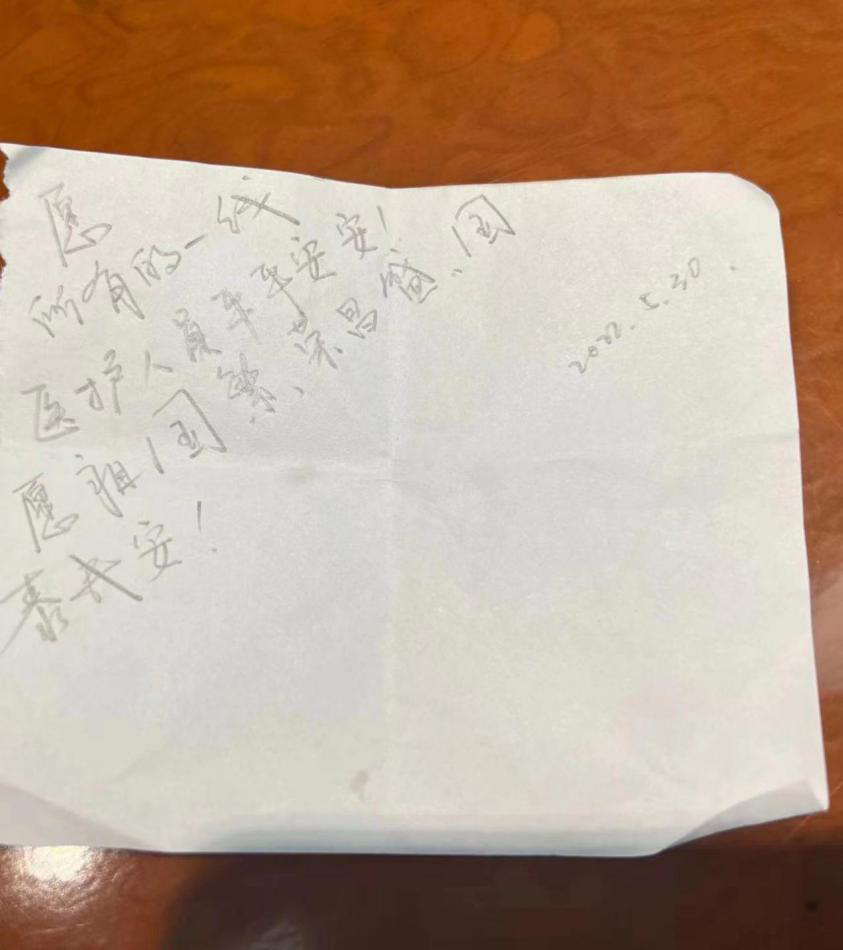 愿
所有的一线
医护人员平平安安!
愿祖国繁、荣昌盛、国
泰长安!
2022.5.30.